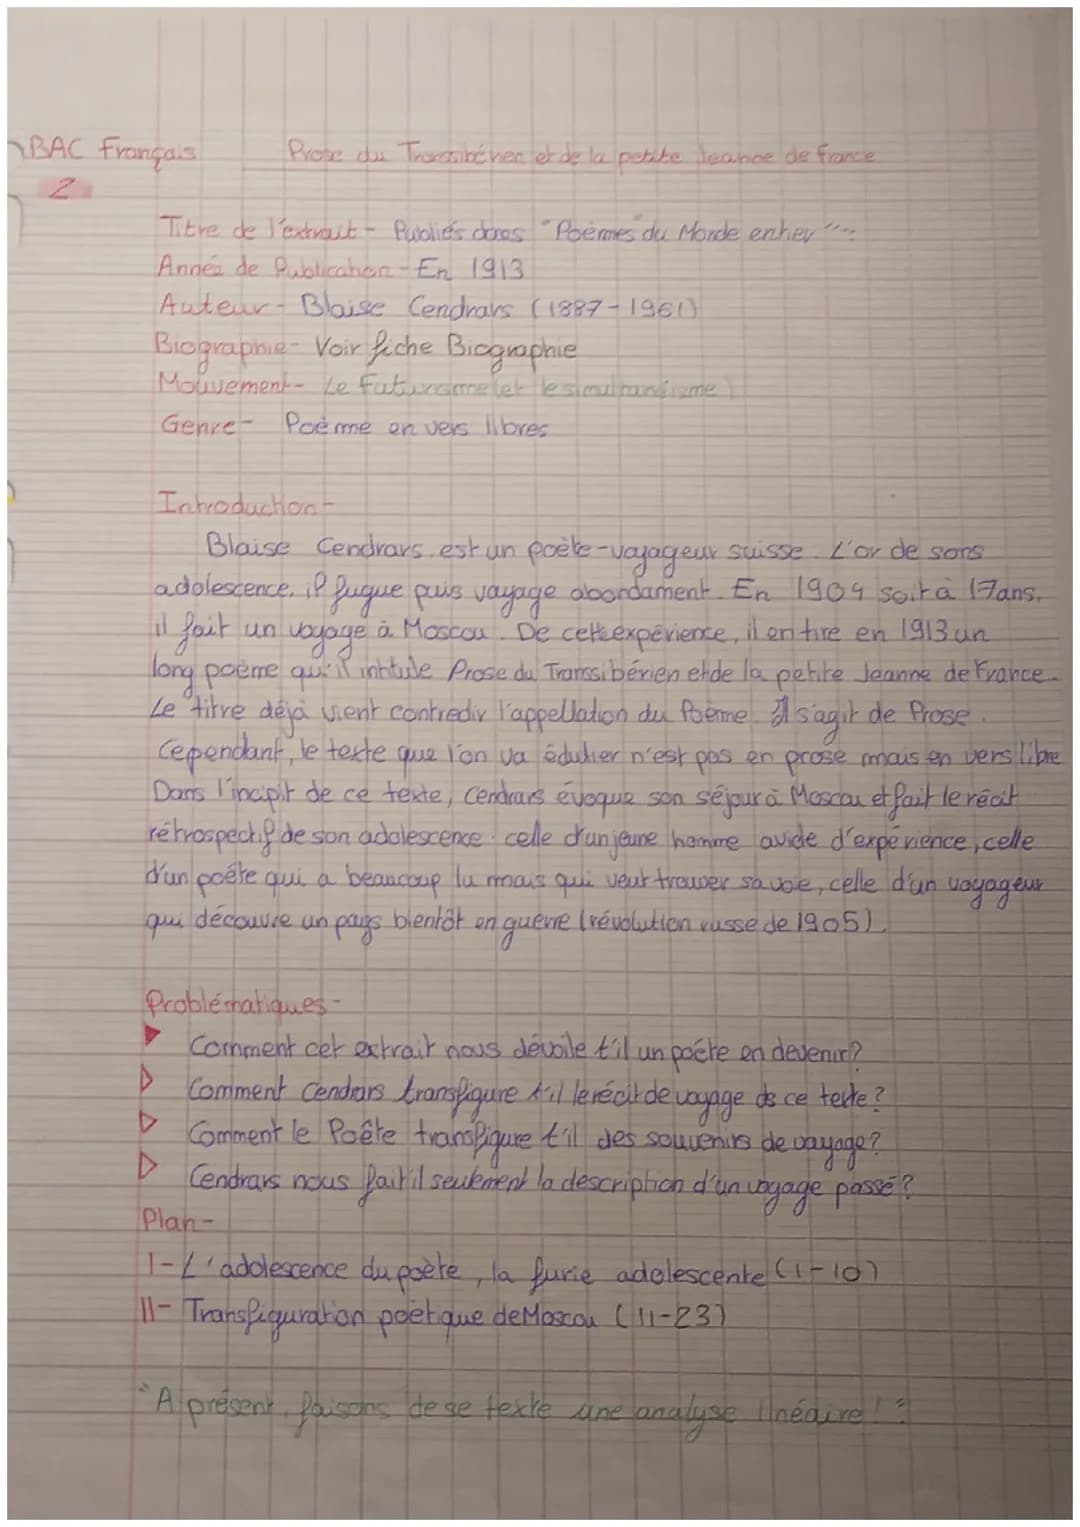 BAC Français Prose du Transsibérien et de la petite Jeanne de france
2
Titre de l'extrait - Publiés dans "Poèmes du Monde entier"
Année de Publication - En 1913
Auteur - Blaise Cendrars (1887-1961)
Biographie - Voir fiche Biographie
Mouvement - Le Futurisme (et le simultanéisme)
Genre - Poème en vers libres
Introduction -
Blaise Cendrars est un poète-voyageur suisse. L'or de sons
adolescence, il fugue puis voyage abordament. En 1904 soit à 17 ans,
il fait un voyage à Moscou. De cette expérience, il en tire en 1913 un
long poème qu'il intitule Prose du Transsibérien et de la petite Jeanne de France.
Le titre déjà vient contredir l'appellation du Poème. Il s'agit de Prose.
Cependant, le texte que l'on va édutier n'est pas en prose mais en vers libre
Dans l'incipit de ce texte, Cendrars évoque son séjour à Moscou et fait le récit
rétrospectif de son adolescence : celle d'un jeune homme avide d'expérience, celle
d'un poête qui a beaucoup lu mais qui veut trouver sa voie, celle d'un voyageur
qui découvre un pays bientôt en guerre (révolution russe de 1905).
Problématiques -
Comment cet extrait nous dévoile t'il un poéte en devenir?
Comment Cendrars transfigure t'il le récit de voyage ds ce texte?
Comment le Poête transfigure t'il des souvenirs de voyage?
Cendrars nous fait il seulement la description d'un voyage passé?
Plan -
I - L'adolescence du poète, la furie adolescente (1-10)
II - Transfiguration poétique de Moscou (11-23)
"A présent, faisons de se texte une analyse linéaire!"